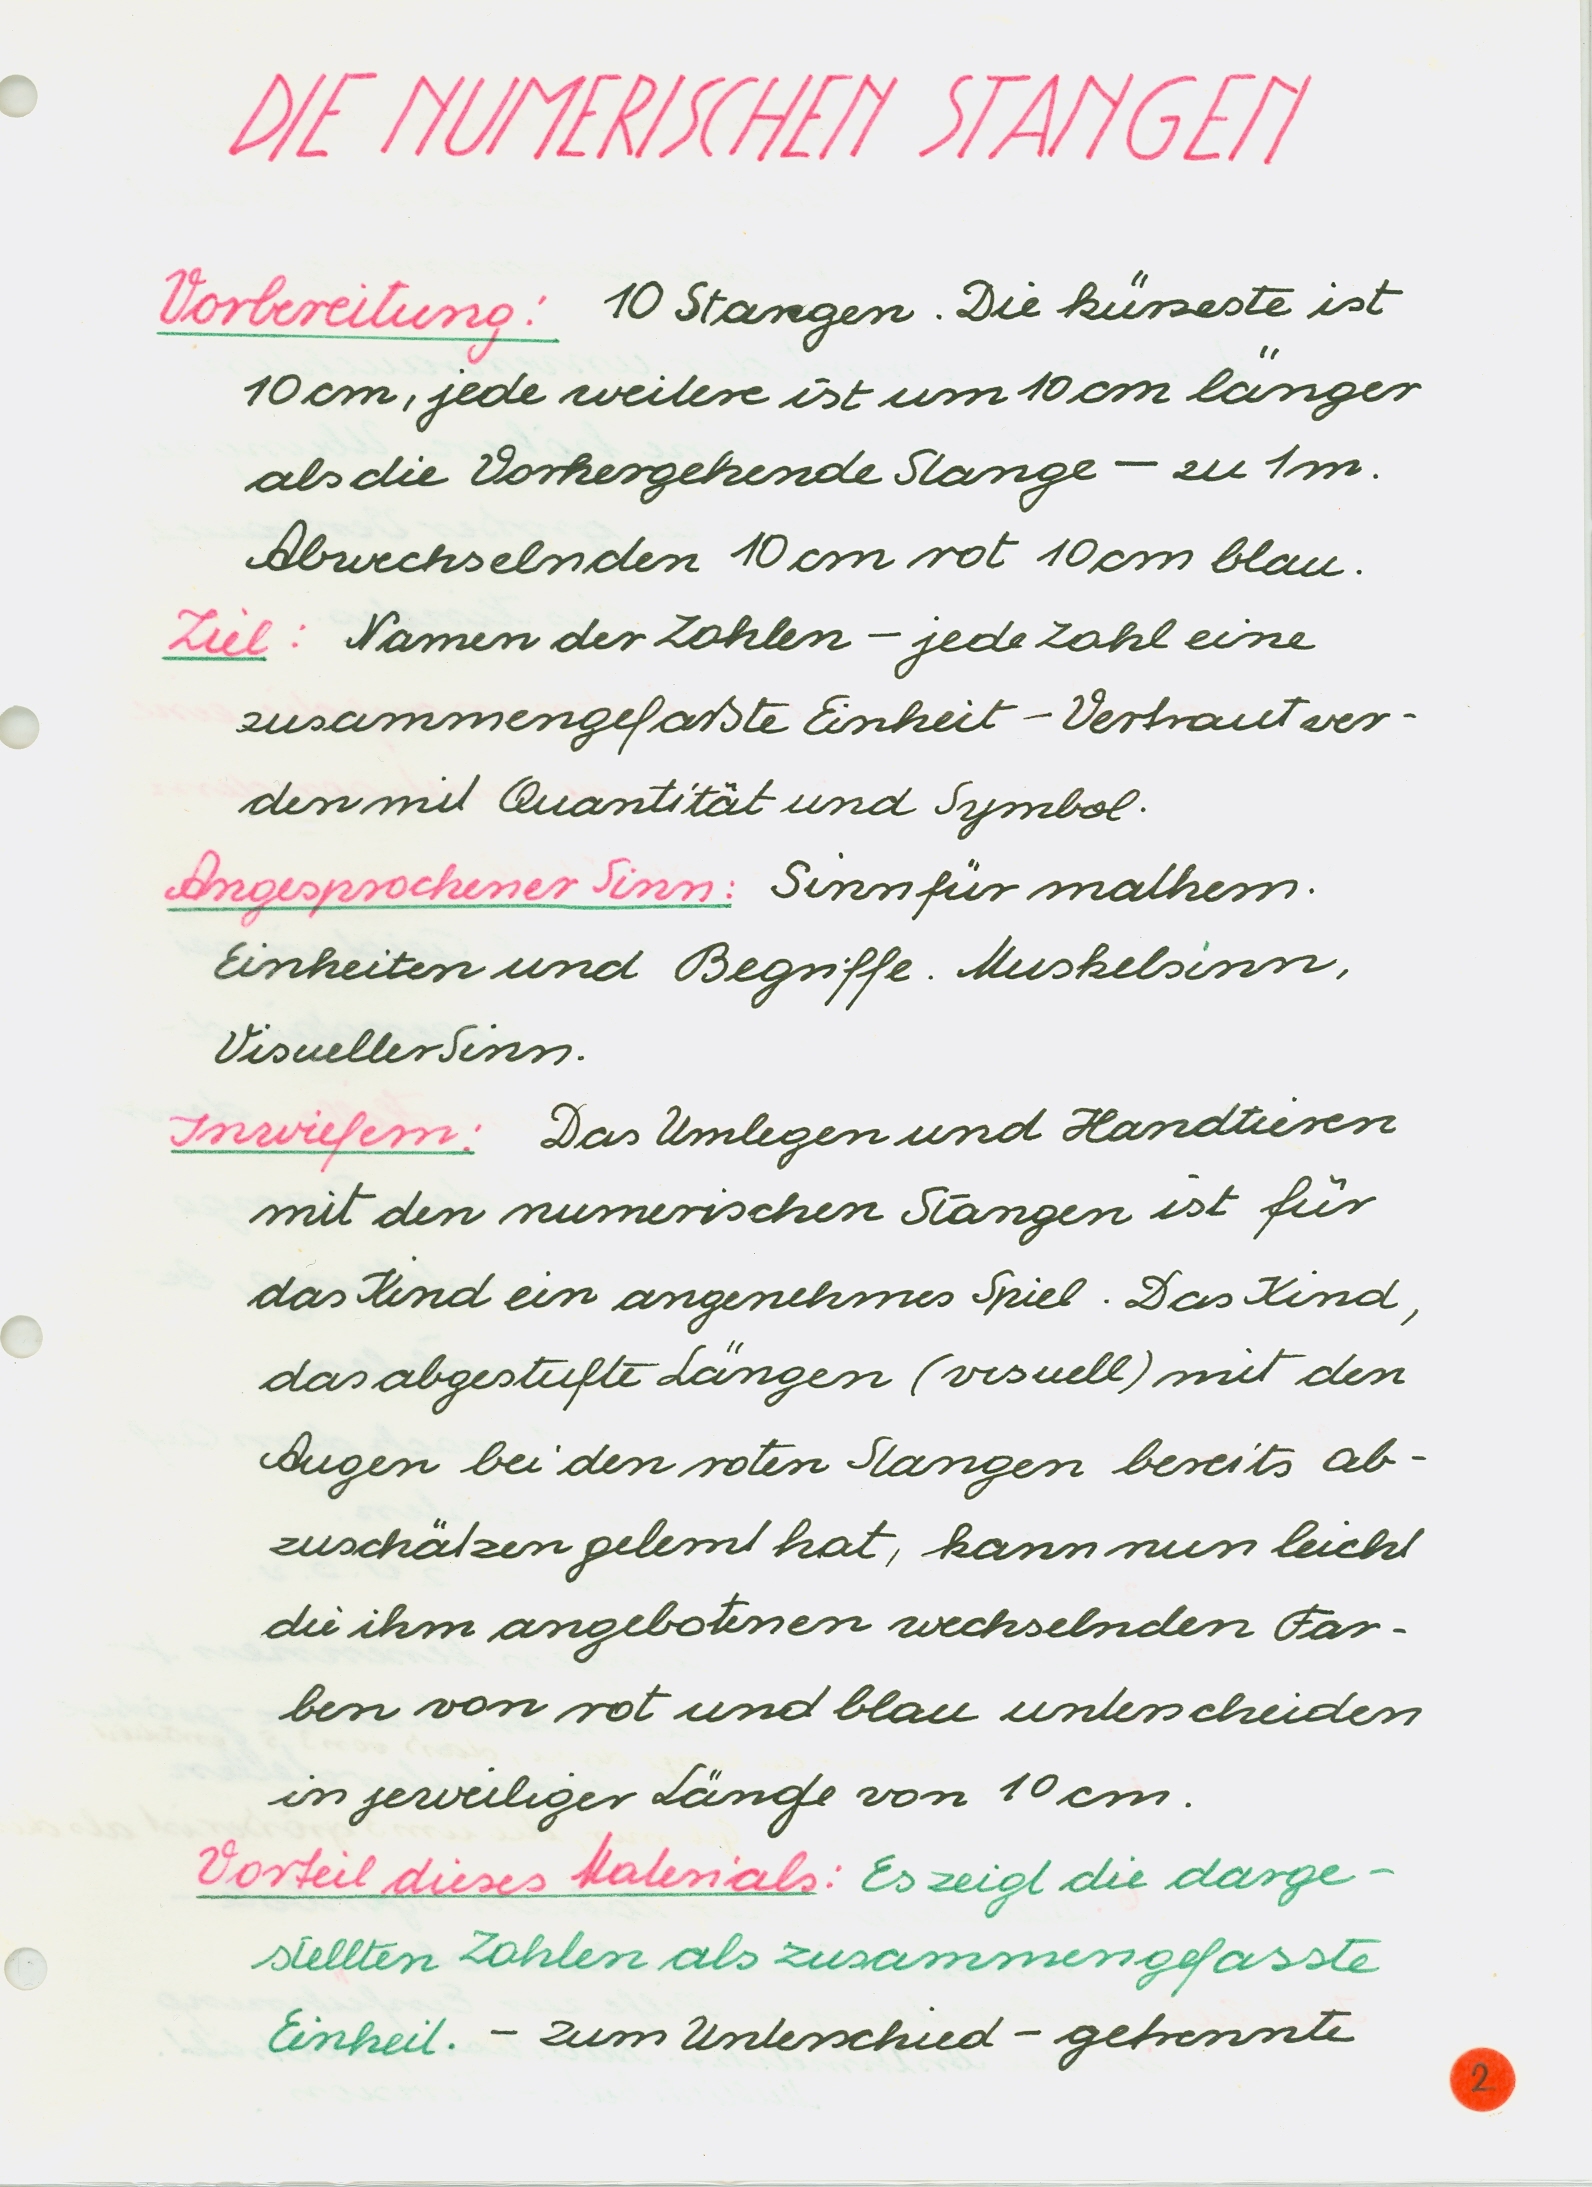 DIE NUMERISCHEN STANGEN
Vorbereitung: 10 Stangen. Die kürzeste ist
10 cm, jede weitere ist um 10 cm länger
als die Vorhergehende Stange – zu 1 m.
Abwechselnden 10 cm rot 10 cm blau.
Ziel: Namen der Zahlen – jede Zahl eine
zusammengefaßte Einheit – Vertraut wer-
den mit Quantität und Symbol.
Angesprochener Sinn: Sinn für mathem.
Einheiten und Begriffe. Muskelsinn,
Visueller Sinn.
Inwiefern: Das Umlegen und Handtieren
mit den numerischen Stangen ist für
das Kind ein angenehmes Spiel. Das Kind,
das abgestufte Längen (visuell) mit den
Augen bei den roten Stangen bereits ab-
zuschätzen gelernt hat, kann nun leicht
die ihm angebotenen wechselnden Far-
ben von rot und blau unterscheiden
in jeweiliger Länge von 10 cm.
Vorteil dieses Materials: Es zeigt die darge-
stellten Zahlen als zusammengefasste
Einheit. – zum Unterschied – getrennte
2